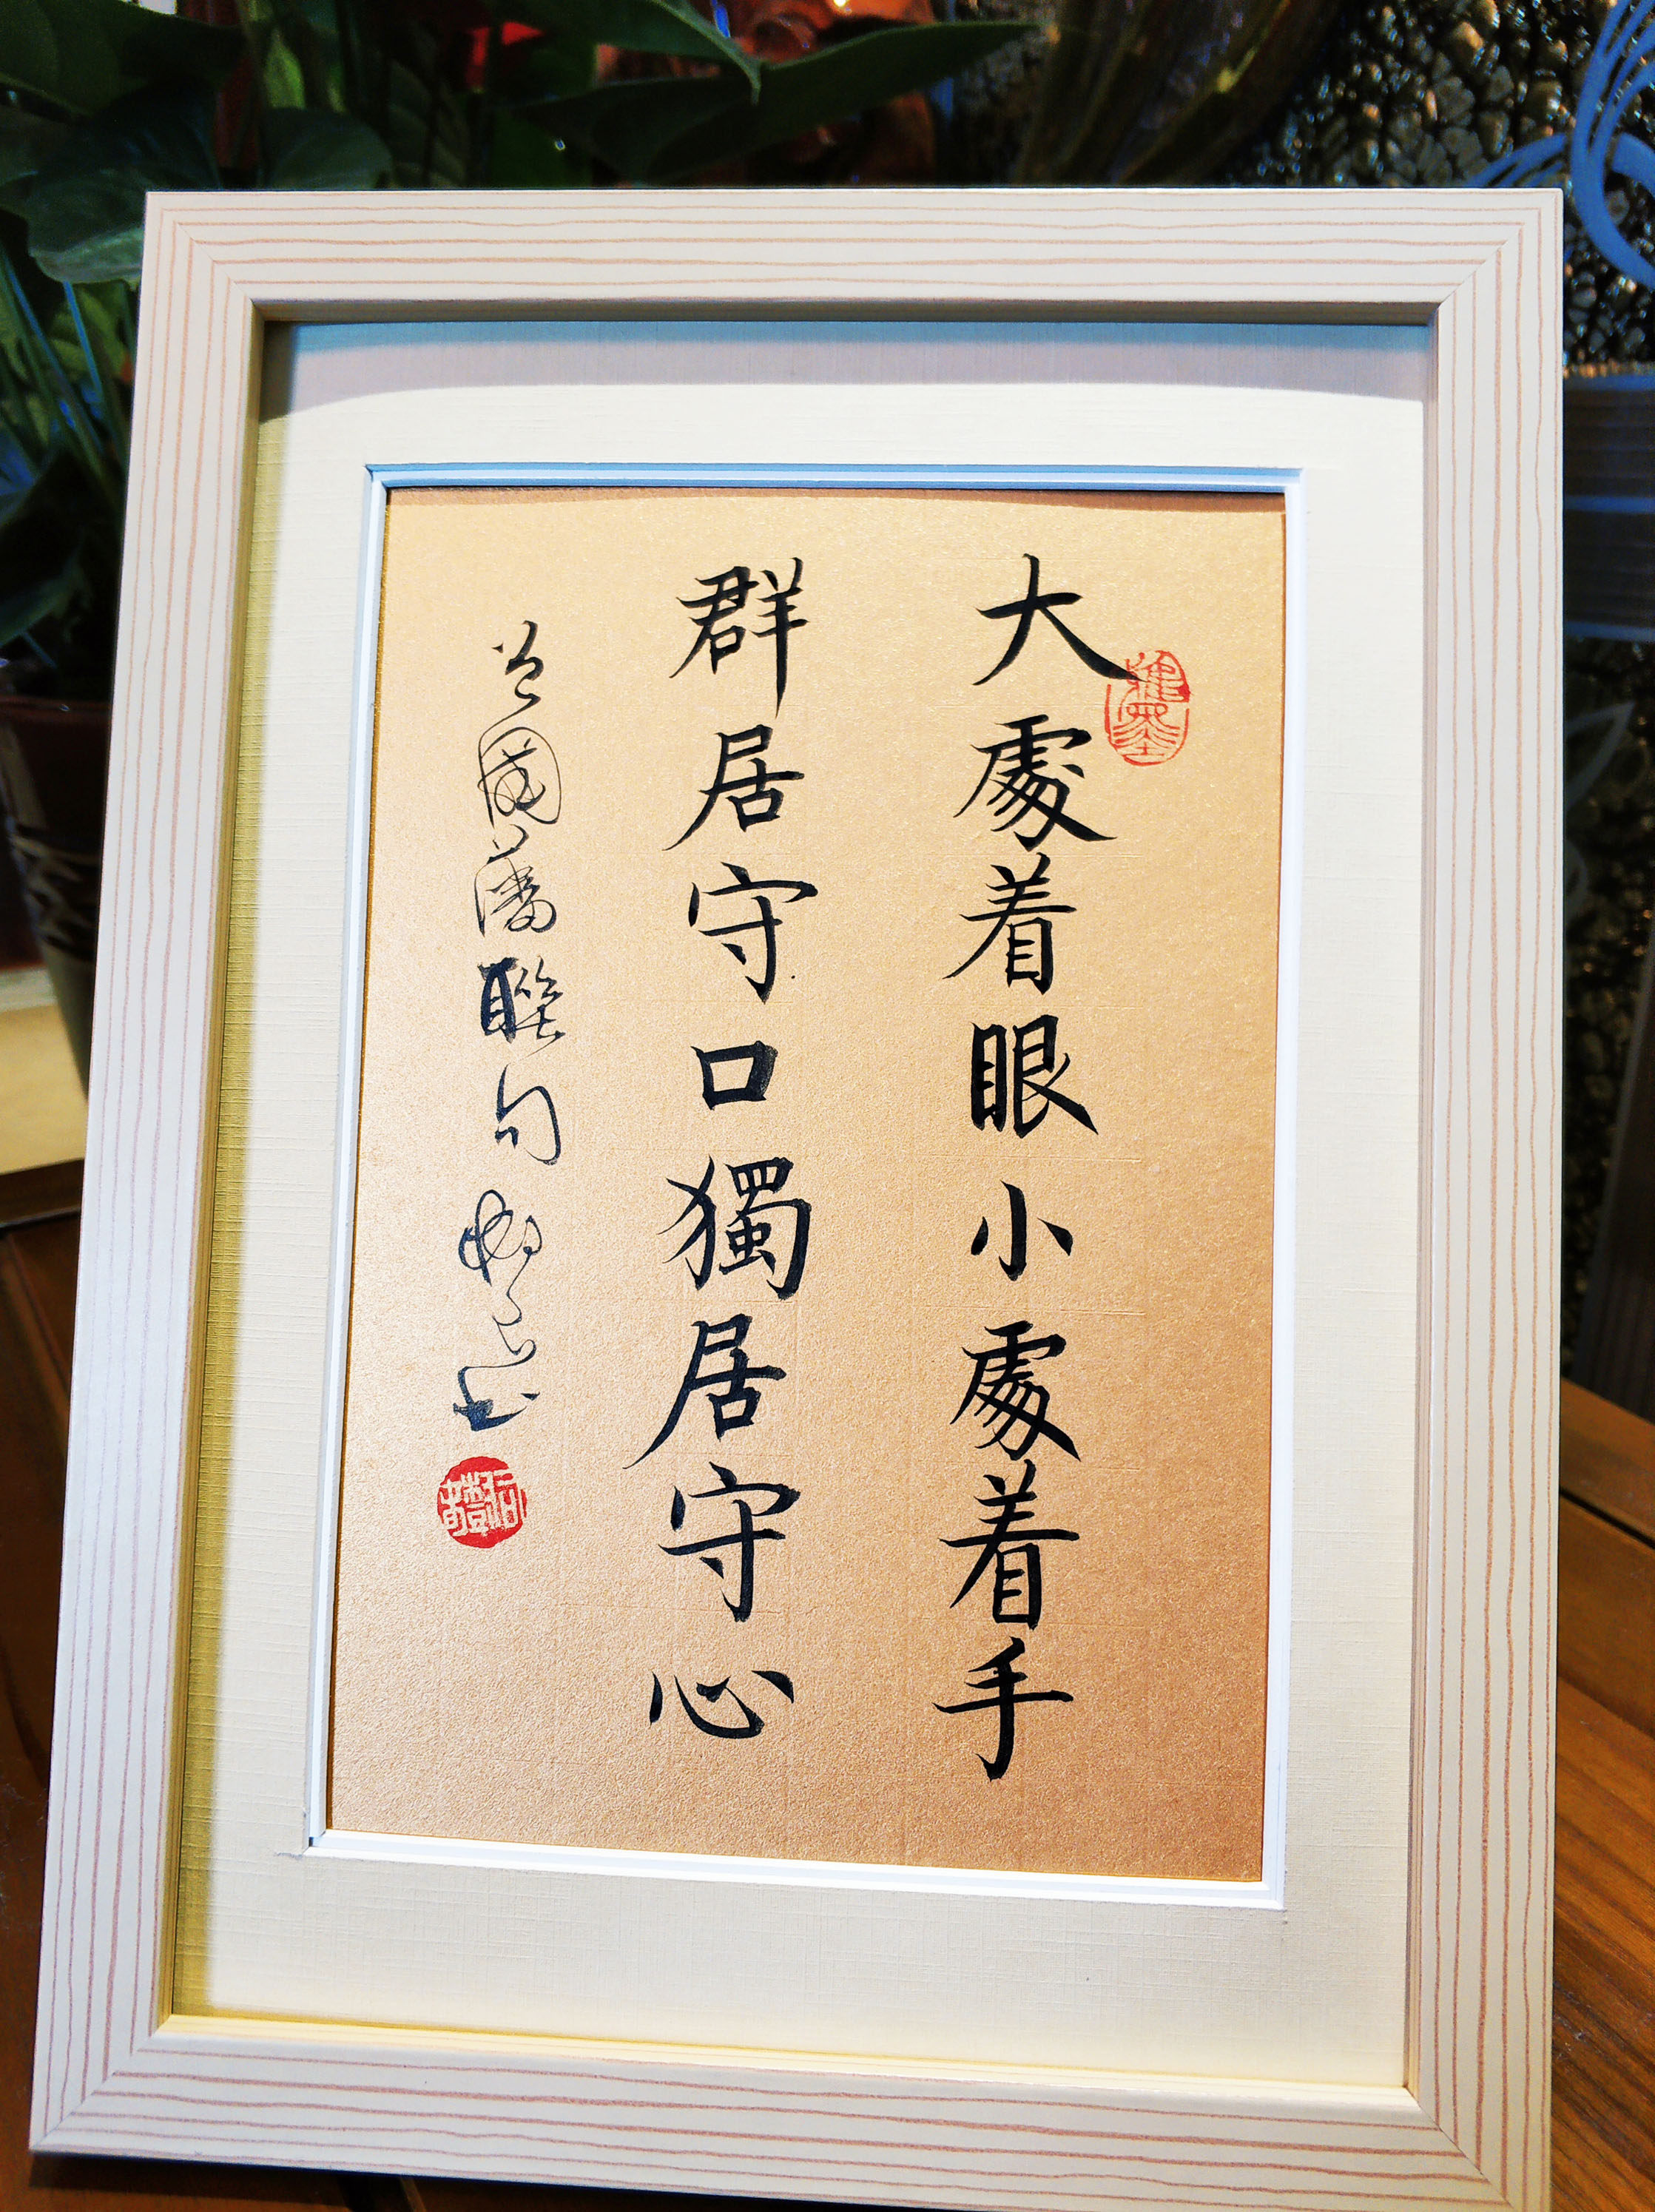 大處着眼小處着手
群居守口獨居守心
曾國藩聯句 書